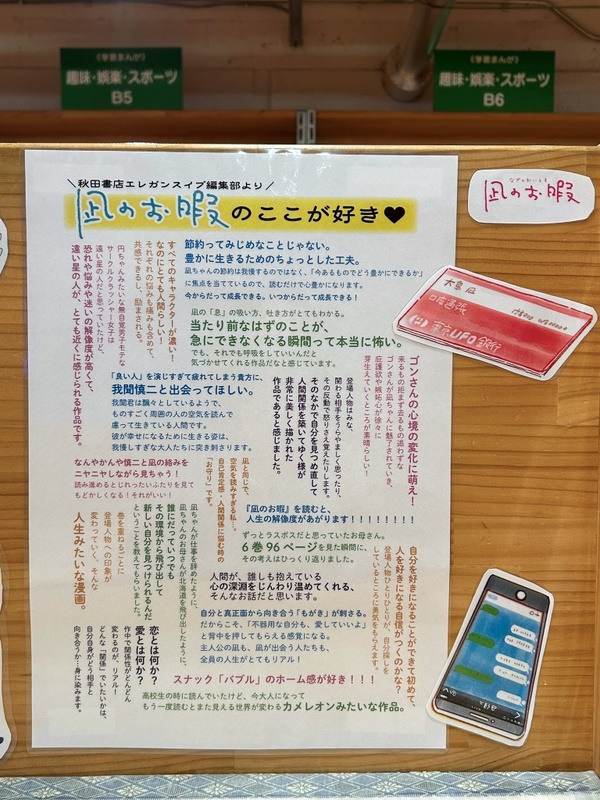 《学習まんが》
趣味・娯楽・スポーツ
B5
《学習まんが》
趣味・娯楽・スポーツ
B6
＼秋田書店エレガンスイブ編集部より／
凪のお暇のここが好き♥
節約ってみじめなことじゃない。
豊かに生きるためのちょっとした工夫。
凪ちゃんの節約は我慢するのではなく、「今あるものでどう豊かにできるか」
に焦点を当てているので、読むだけで心豊かになります。
今からだって成長できる。いつからだって成長できる！
すべてのキャラクターが濃い！
なのにとても人間らしい！
それぞれの悩みも痛みも含めて、
共感できるし、励まされる。
円ちゃんみたいな無自覚男子モテな
サークルクラッシャー女子は
遠い星の人だと思っていたけど、
恐れや悩みや迷いの解像度が高くて、
遠い星の人が、とても近くに感じられる作品です。
凪の「息」の吸い方、吐き方がとてもわかる。
当たり前なはずのことが、
急にできなくなる瞬間って本当に怖い。
でも、それでも呼吸をしていいんだと
気づかせてくれる作品だなと感じています。
「良い人」を演じすぎて疲れてしまう貴方に、
我聞慎二と出会ってほしい。
我聞君は飄々としているようで、
ものすごく周囲の人の空気を読んで
慮って生きている人間です。
彼が幸せになるために生きる姿は、
我慢しすぎな大人たちに突き刺さります。
登場人物はみな、
関わる相手をうらやましく思ったり、
その反動で怒りさえ覚えたりします。
そのなかで自分を見つめ直して
人間関係を築いてゆく様が
非常に美しく描かれた
作品であると感じました。
ゴンさんの心境の変化に萌え！
来るもの拒まず去るもの追わずな
ゴンさんが凪ちゃんに魅了されていき、
庇護欲や嫉妬心が徐々に
芽生えていくところが素晴らしい！
なんやかんや慎二と凪の絡みを
ニヤニヤしながら見ちゃう！
読み進めるとじれったいふたりを見て
もどかしくなる！それがいい！
凪と同じで、
空気を読みすぎる私…。
自己肯定感・人間関係に悩む時の
「お守り」です。
『凪のお暇』を読むと、
人生の解像度があがります！！！！！！！！
ずっとラスボスだと思っていたお母さん。
6巻96ページを見た瞬間に、
その考えはひっくり返りました。
巻を重ねるごとに
登場人物への印象が
変わっていく、そんな
人生みたいな漫画。
凪ちゃんが仕事を辞めるように、
凪ちゃんのお母さんが北海道を飛び出したように、
誰にだっていつでも
その環境から飛び出して
新しい自分を見つけられるんだ
ということを教えてもらいました。
人間が、誰しも抱えている
心の深淵をじんわり温めてくれる、
そんなお話だと思います。
自分を好きになることができて初めて、
人を好きになる自信がつくのかな？
登場人物ひとりひとりが、自分探しを
しているところに勇気をもらえます。
自分と真正面から向き合う「もがき」が刺さる。
だからこそ、「不器用な自分も、愛していいよ」
と背中を押してもらえる感覚になる。
主人公の凪も、凪が出会う人たちも、
全員の人生がとてもリアル！
恋とは何か？
愛とは何か？
作中で関係性がどんどん
変わるのが、リアル！
どんな「関係」でいたいかは、
自分自身がどう相手と
向き合うか…身に染みます。
スナック「バブル」のホーム感が好き！！！
高校生の時に読んでいたけど、今大人になって
もう一度読むとまた見える世界が変わるカメレオンみたいな作品。
凪のお暇
大島 凪
東京UFO銀行